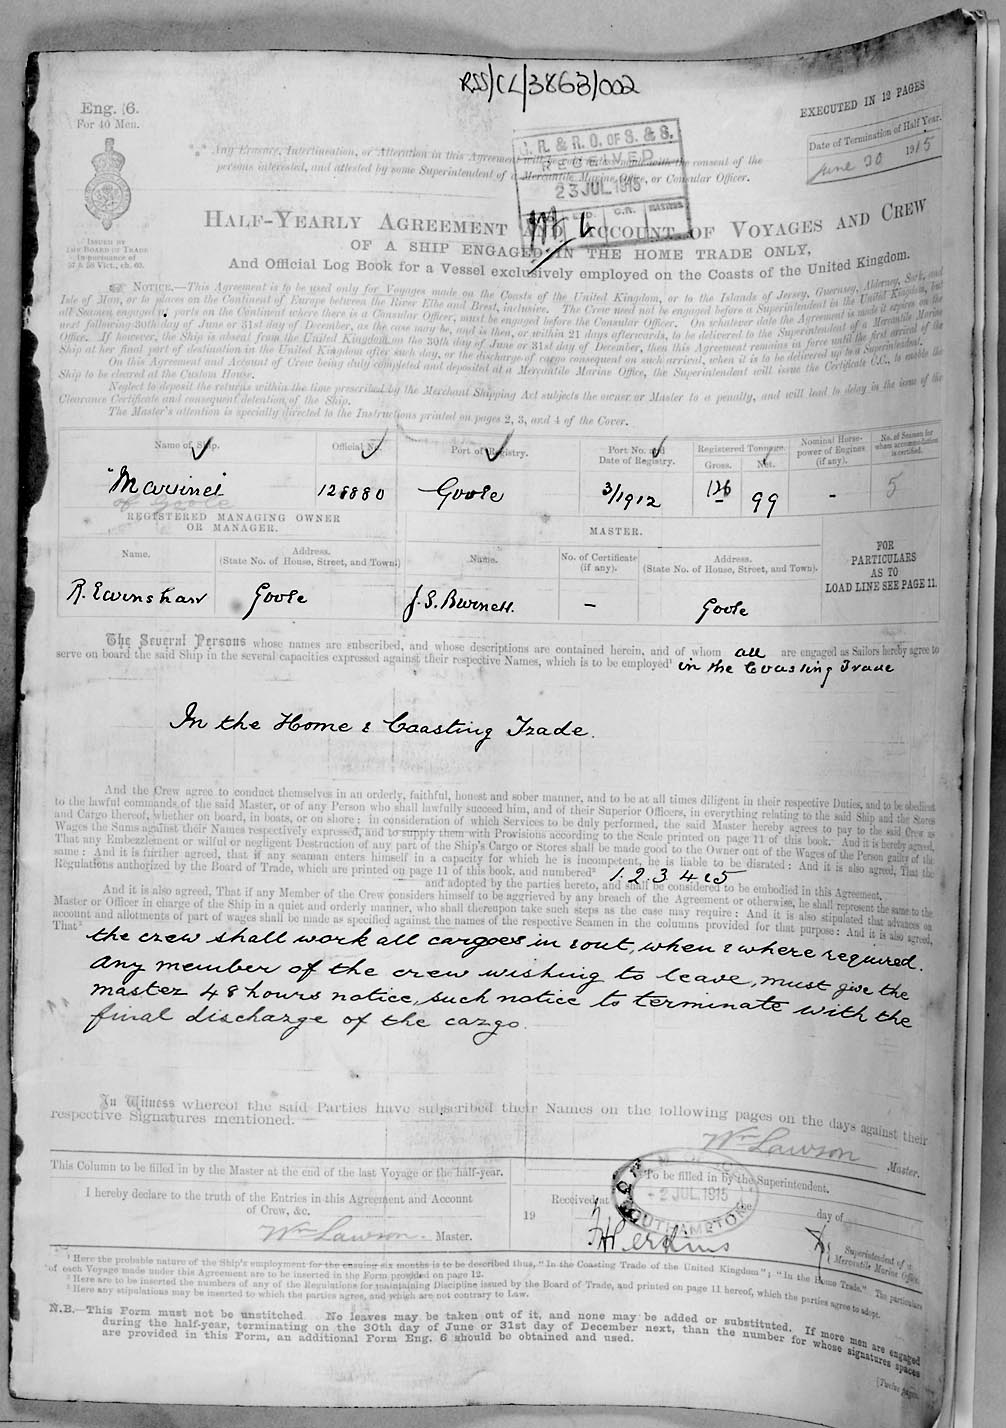 RSS/CL/3863/002
Eng. 6.
For 40 Men.
EXECUTED IN 12 PAGES
Date of Termination of Half Year.
June 30 1915
Any Erasure, Interlineation, or Alteration in this Agreement will be void unless made with the consent of the
persons interested, and attested by some Superintendent of a Mercantile Marine Office, or Consular Officer.
G. R. & R. O. OF S. & S.
RECEIVED
23 JUL 1915
C.R.
ISSUED BY
THE BOARD OF TRADE
In pursuance of
57 & 58 Vict., ch. 60.
HALF-YEARLY AGREEMENT AND ACCOUNT OF VOYAGES AND CREW
OF A SHIP ENGAGED IN THE HOME TRADE ONLY,
And Official Log Book for a Vessel exclusively employed on the Coasts of the United Kingdom.
NOTICE.—This Agreement is to be used only for Voyages made on the Coasts of the United Kingdom, or to the Islands of Jersey, Guernsey, Alderney, Sark, and
Isle of Man, or to places on the Continent of Europe between the River Elbe and Brest, inclusive. The Crew need not be engaged before a Superintendent in the United Kingdom, but
all Seamen engaged at ports on the Continent where there is a Consular Officer, must be engaged before the Consular Officer. On whatever date the Agreement is made it expires on the
next following 30th day of June or 31st day of December, as the case may be, and is then, or within 21 days afterwards, to be delivered to the Superintendent of a Mercantile Marine
Office. If however, the Ship is absent from the United Kingdom on the 30th day of June or 31st day of December, then this Agreement remains in force until the first arrival of the
Ship at her final port of destination in the United Kingdom after such day, or the discharge of cargo consequent on such arrival, when it is to be delivered up to a Superintendent.
On this Agreement and Account of Crew being duly completed and deposited at a Mercantile Marine Office, the Superintendent will issue the Certificate C.C., to enable the
Ship to be cleared at the Custom House.
Neglect to deposit the returns within the time prescribed by the Merchant Shipping Act subjects the owner or Master to a penalty, and will lead to delay in the issue of the
Clearance Certificate and consequent detention of the Ship.
The Master's attention is specially directed to the Instructions printed on pages 2, 3, and 4 of the Cover.
Name of Ship. Official No. Port of Registry. Port No. and Date of Registry. Registered Tonnage. Gross. Net. Nominal Horse-power of Engines (if any). No. of Seamen for whom accommodation is certified.
"Mavinei 128880 Goole 3/1912 126 99 - 5
of Goole
REGISTERED MANAGING OWNER
OR MANAGER.
MASTER.
Name. Address. (State No. of House, Street, and Town) Name. No. of Certificate (if any). Address. (State No. of House, Street, and Town).
FOR
PARTICULARS
AS TO
LOAD LINE SEE PAGE 11.
R. Evinshaw Goole J. S. Burnell. – Goole
The Several Persons whose names are subscribed, and whose descriptions are contained herein, and of whom all are engaged as Sailors hereby agree to
serve on board the said Ship in the several capacities expressed against their respective Names, which is to be employed¹ in the Coasting Trade
In the Home & Coasting Trade.
And the Crew agree to conduct themselves in an orderly, faithful, honest and sober manner, and to be at all times diligent in their respective Duties, and to be obedient
to the lawful commands of the said Master, or of any Person who shall lawfully succeed him, and of their Superior Officers, in everything relating to the said Ship and the Stores
and Cargo thereof, whether on board, in boats, or on shore : in consideration of which Services to be duly performed, the said Master hereby agrees to pay to the said Crew as
Wages the Sums against their Names respectively expressed, and to supply them with Provisions according to the Scale printed on page 11 of this book. And it is hereby agreed,
That any Embezzlement or wilful or negligent Destruction of any part of the Ship's Cargo or Stores shall be made good to the Owner out of the Wages of the Person guilty of the
same : And it is further agreed, that if any seaman enters himself in a capacity for which he is incompetent, he is liable to be disrated : And it is also agreed, That the
Regulations authorized by the Board of Trade, which are printed on page 11 of this book, and numbered² 1. 2. 3 4 & 5
and adopted by the parties hereto, and shall be considered to be embodied in this Agreement.
And it is also agreed, That if any Member of the Crew considers himself to be aggrieved by any breach of the Agreement or otherwise, he shall represent the same to the
Master or Officer in charge of the Ship in a quiet and orderly manner, who shall thereupon take such steps as the case may require : And it is also stipulated that advances on
account and allotments of part of wages shall be made as specified against the names of the respective Seamen in the columns provided for that purpose : And it is also agreed,
That³ the crew shall work all cargoes in & out, when & where required.
Any member of the crew wishing to leave, must give the
master 48 hours notice, such notice to terminate with the
final discharge of the cargo.
In Witness whereof the said Parties have subscribed their Names on the following pages on the days against their
respective Signatures mentioned.
Wm Lawson Master.
This Column to be filled in by the Master at the end of the last Voyage or the half-year.
I hereby declare to the truth of the Entries in this Agreement and Account
of Crew, &c.
Wm Lawson. Master.
To be filled in by the Superintendent.
Received at
19 the day of
- 2 JUL 1915
SOUTHAMPTON
Perkins
Superintendent of a
Mercantile Marine Office.
¹ Here the probable nature of the Ship's employment for the ensuing six months is to be described thus, "In the Coasting Trade of the United Kingdom"; "In the Home Trade." The particulars
of each Voyage made under this Agreement are to be inserted in the Form provided on page 12.
² Here are to be inserted the numbers of any of the Regulations for maintaining Discipline issued by the Board of Trade, and printed on page 11 hereof, which the parties agree to adopt.
³ Here any stipulations may be inserted to which the parties agree, and which are not contrary to Law.
N.B.—This Form must not be unstitched. No leaves may be taken out of it, and none may be added or substituted. If more men are engaged
during the half-year, terminating on the 30th day of June or 31st day of December next, than the number for whose signatures spaces
are provided in this Form, an additional Form Eng. 6 should be obtained and used.
[Twelve pages.